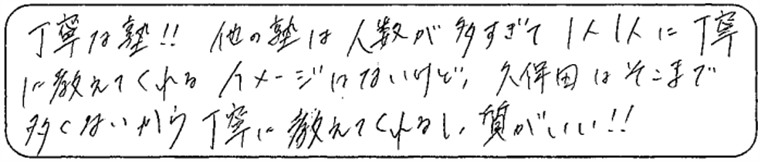 丁寧な塾!! 他の塾は人数が多すぎて1人1人に丁寧
に教えてくれるイメージはないけど、久保田はそこまで
多くないから丁寧に教えてくれるし、質がいい!!